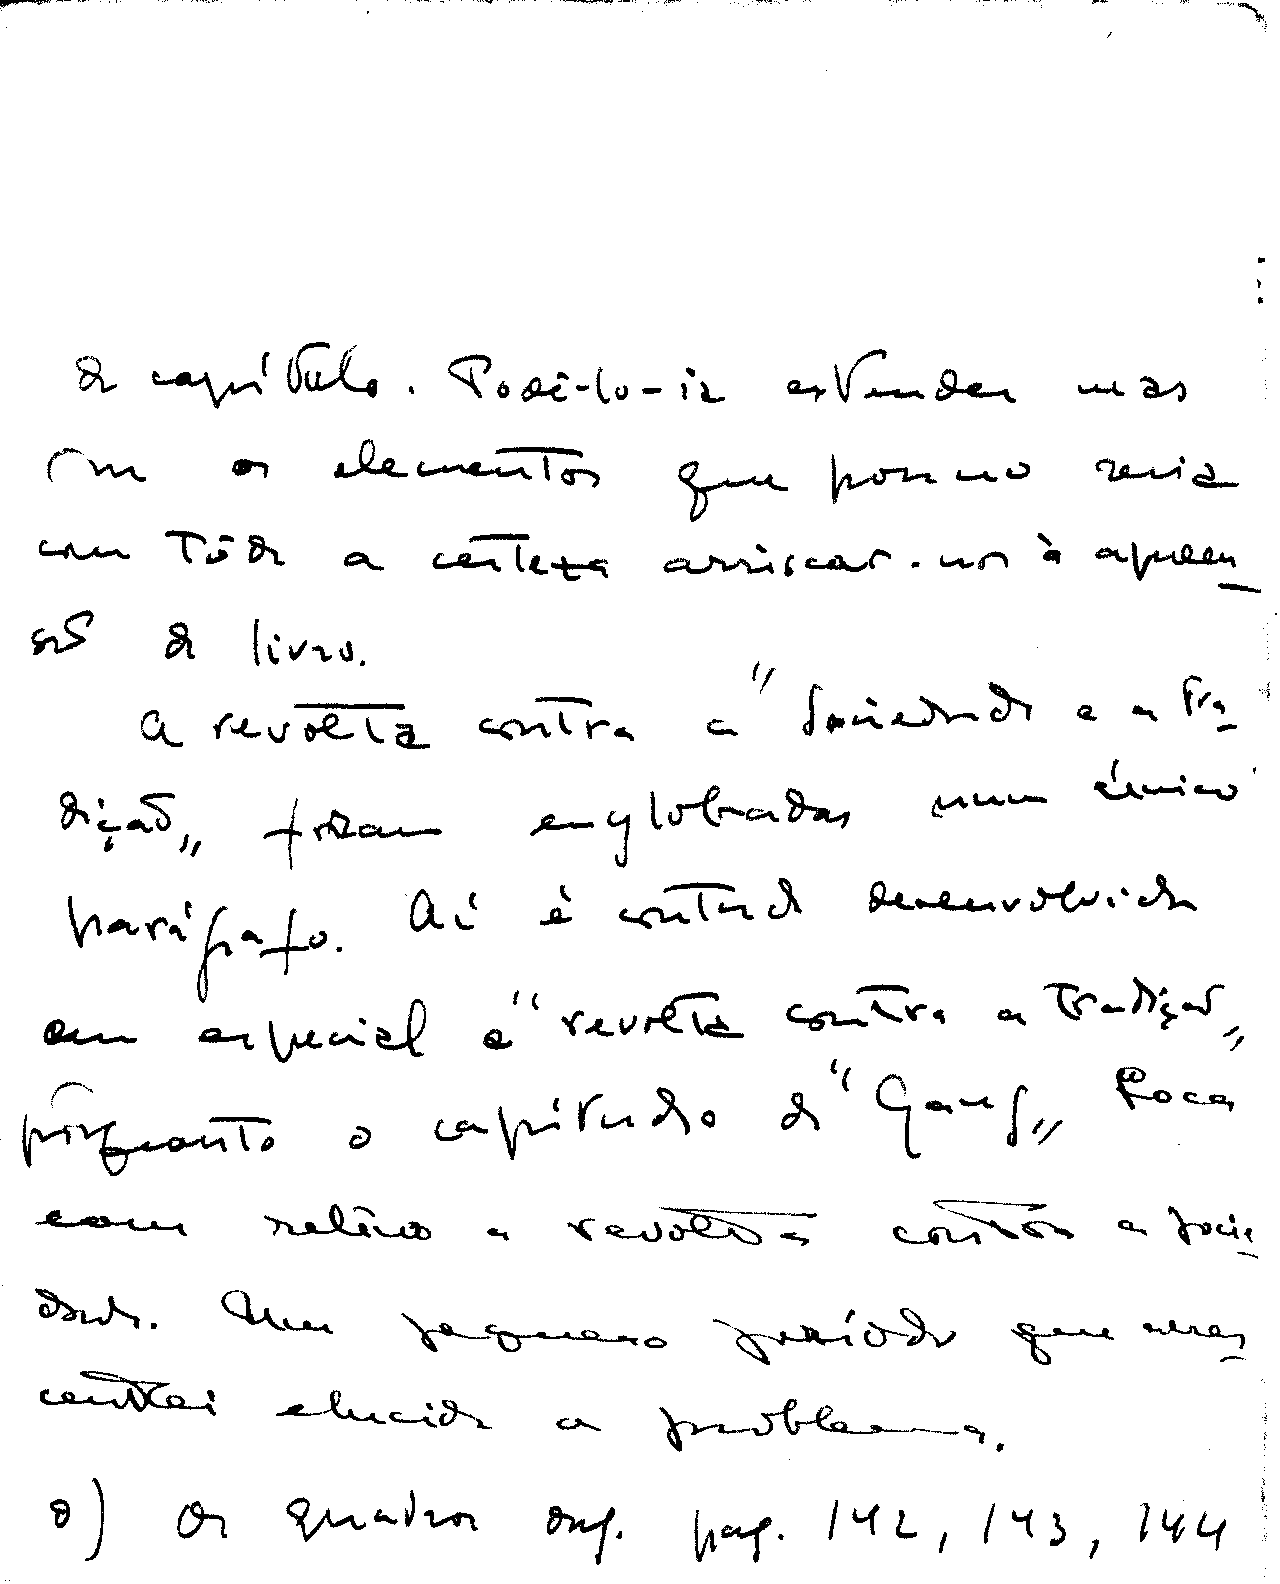 de capítulo. Podê-lo-ia estender mas
com os elementos que possuo seria
com tôda a certeza arriscar-nos à apreen_
são do livro.
A revolta contra a "Sociedade e a Tra_
dição" foram englobadas num único
parágrafo. Aí é contudo desenvolvida
em especial a "revolta contra a tradição"
porquanto o capítulo do "Gang" foca
com relêvo a revolta contra a socie_
dade. Um pequeno período que acres_
centei elucida o problema.
d) Os quadros pag. 142, 143, 144